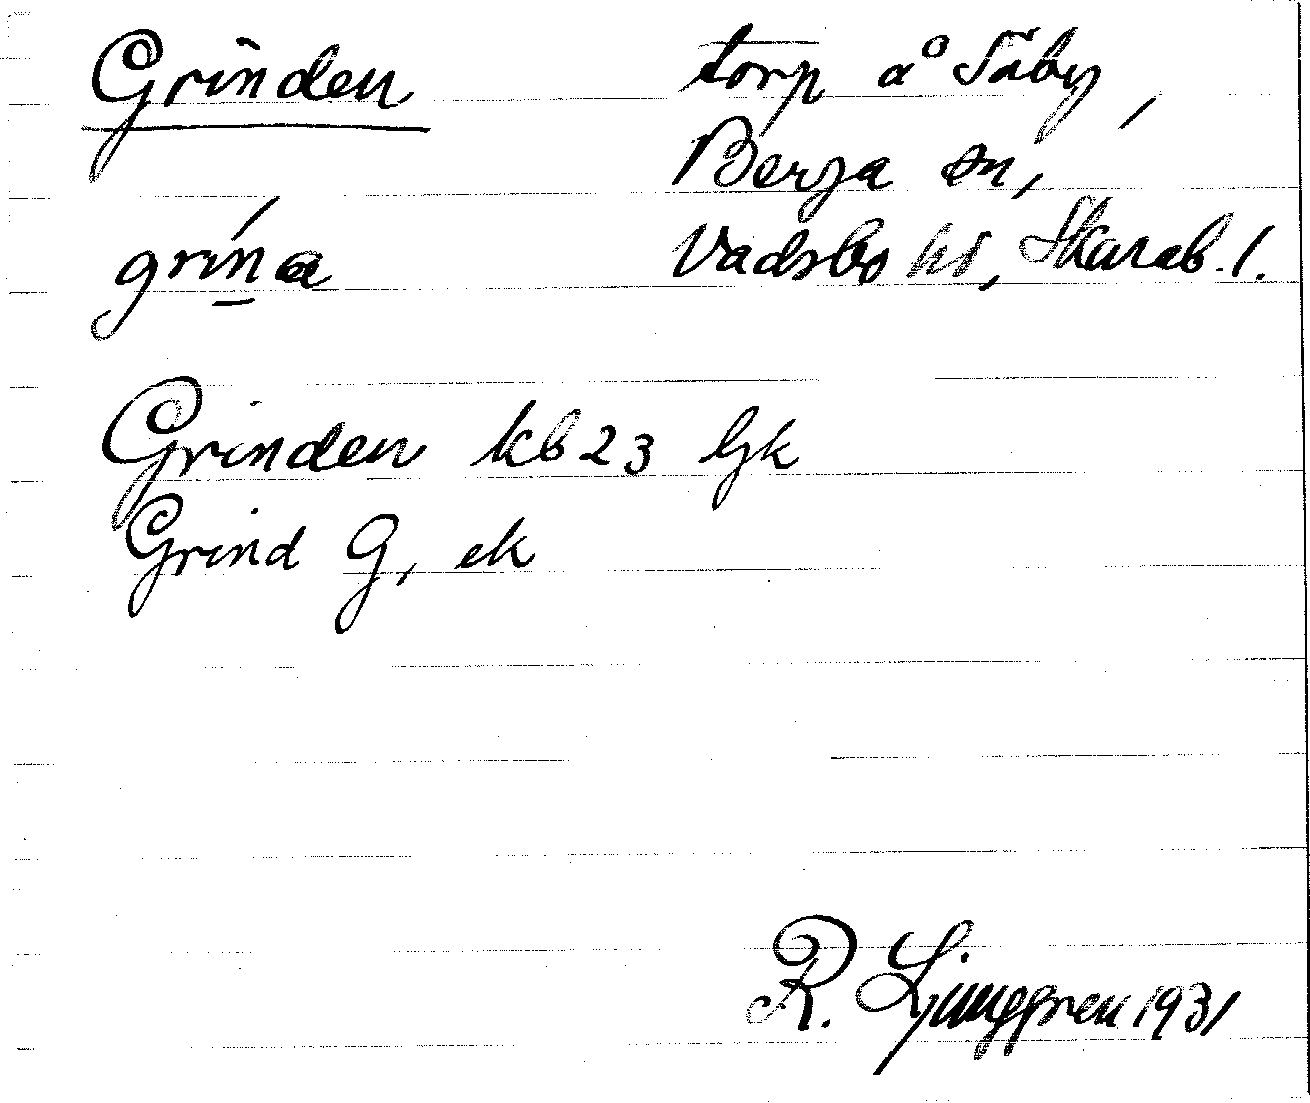 Grinden
torp å Täby,
Berga sn,
Vadsbo hd, Skarab. l.
grína
Grinden kb 23 Gk
Grind G, ek
R. Ljunggren 1931